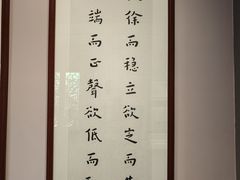 徐而稳立欲定而
端而正聲欲低而